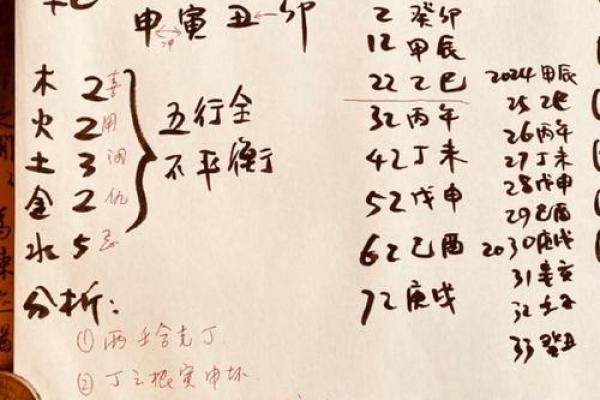 申 寅 丑 ← 卯
冲
木 2 喜
火 2 用
土 3 闲
金 2 仇
水 5 忌
五行全
不平衡
分析：
① 两壬合克丁
② 丁之根寅申坏
2 癸卯
12 甲辰
22 乙巳
32 丙午
42 丁未
52 戊申
62 己酉
72 庚戌
2024 甲辰
25 乙巳
26 丙午
27 丁未
28 戊申
29 己酉
2030 庚戌
31 辛亥
32 壬子
33 癸丑